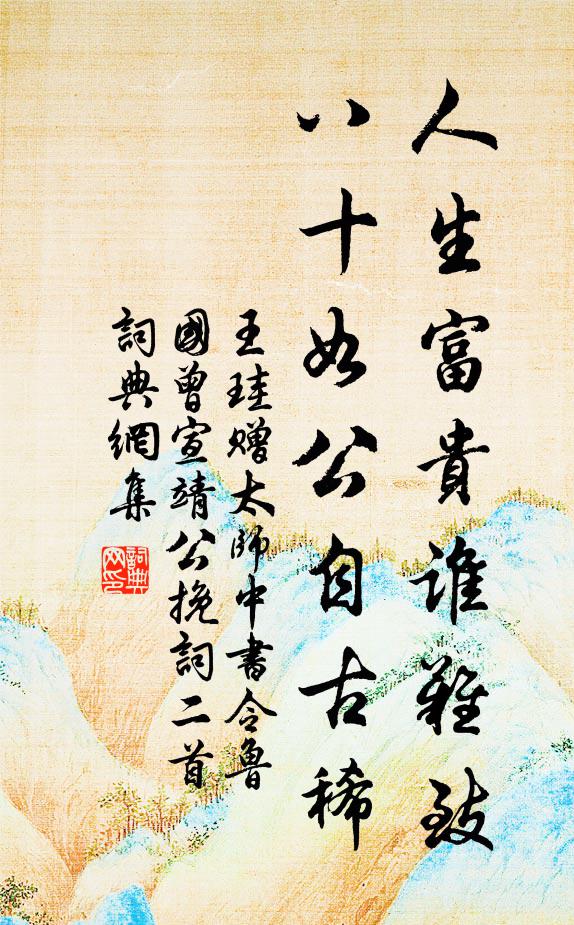 人生富貴誰難致
八十如公自古稀
王珪贈太師中書令魯
國曾宣靖公挽詞二首
詞典網集
詞典
网印